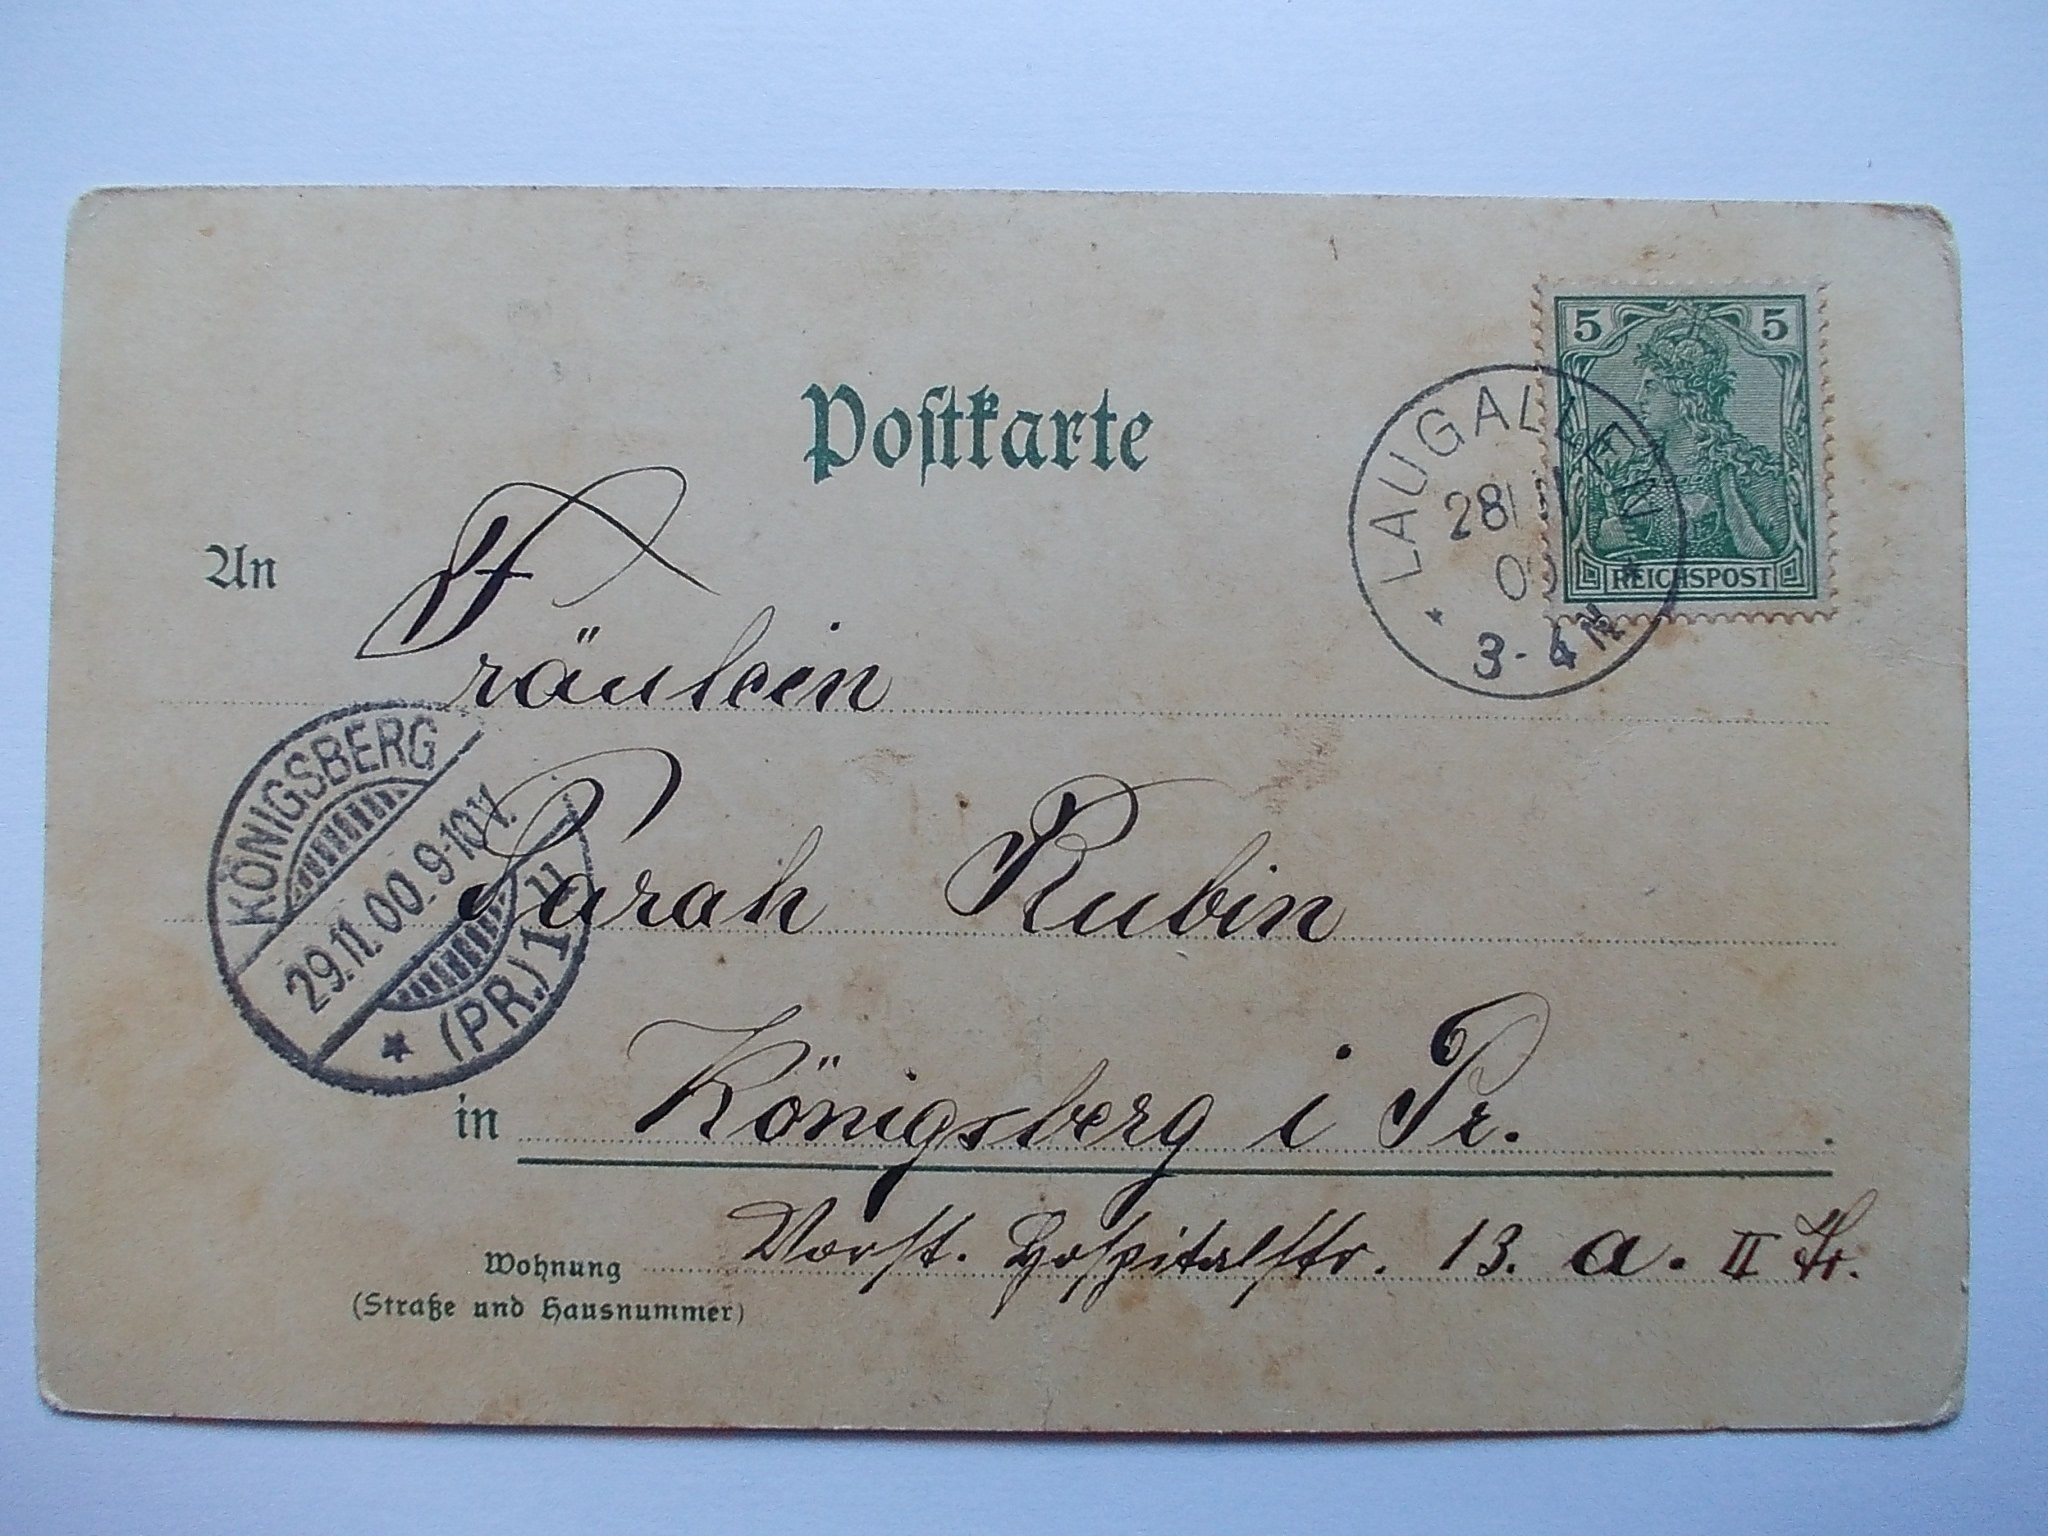 Postkarte
5 5
REICHSPOST
LAUGALLEN
28
3-4 N
An Fräulein
Sarah Rubin
KÖNIGSBERG
29.11.00. 9-10 V.
(PR.) 1
in Königsberg i Pr.
Wohnung Vorst. Hospitalstr. 13. a. II Tr.
(Straße und Hausnummer)